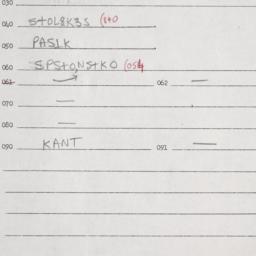 030
040 STOL8K3S (140
050 PASIK
060 SPSTONSTKO (054
061 062 —
070 —
080 —
090 KANT 091 —